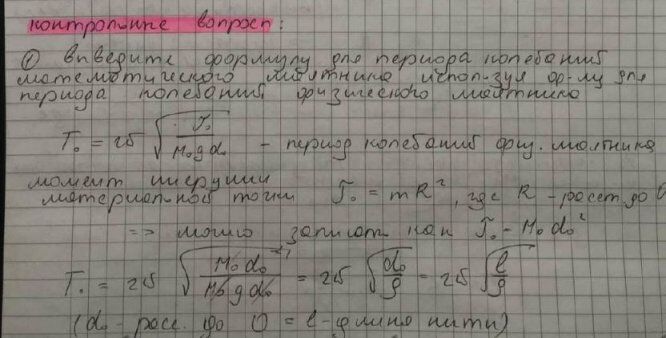 контрольные вопросы:
① Выведите формулу для периода колебаний
математического маятника используя ф-лу для
периода колебаний физического маятника
T₀ = 2π √(J₀ / M₀gd₀) - период колебаний физ. маятника
момент инерции
материальной точки J₀ = mR², где R - расст. до О
=> можно записать как J₀ - M₀d₀²
T₀ = 2π √(M₀d₀² / M₀gd₀) = 2π √(d₀/g) = 2π √(l/g)
(d₀ - расс. до О = l - длина нити)